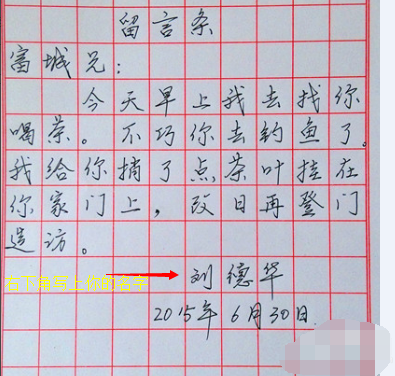 留言条
富城兄:
今天早上我去找你
喝茶。不巧你去钓鱼了。
我给你捎了点茶叶挂在
你家门上,改日再登门
造访。
刘德华
2015年6月30日.